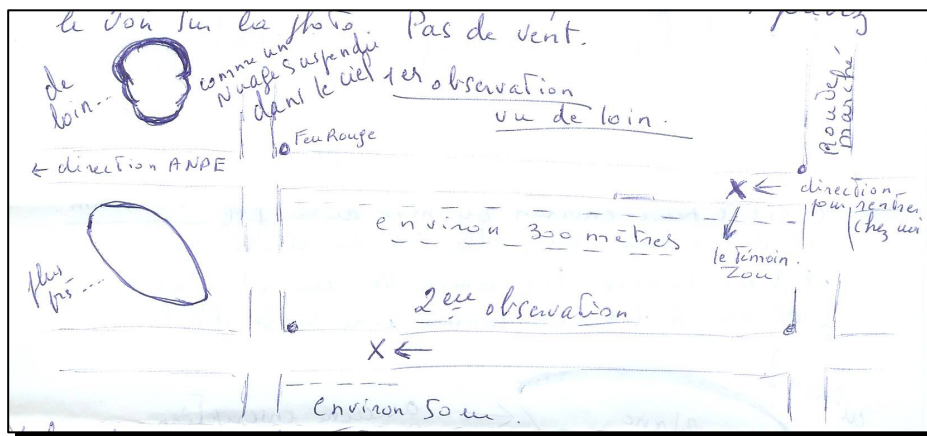 le voir sur la photo. Pas de vent.
de loin...
comme un
nuage suspendu
dans le ciel
1er observation
vu de loin.
Rond marché
Feu Rouge
← direction ANPE
X ← direction
pour rentrer
chez moi
environ 300 mètres
le Témoin.
plus
près....
2eme observation.
X ←
environ 50 m.